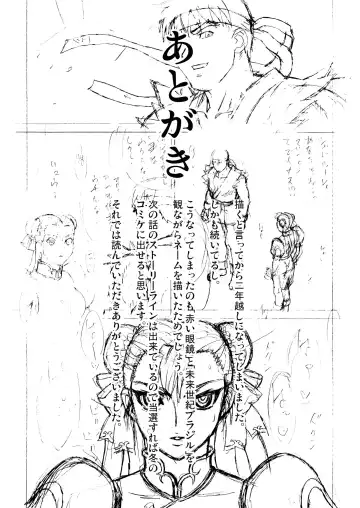 あとがき
描くと言ってから二年越しになってしまいました。
しかも続いてるし。
こうなってしまったのも「赤い眼鏡」と「未来世紀ブラジル」を
観ながらネームを描いたためでしょう。
次の話のストーリーラインは出来ているので当選すれば冬の
コミケに出せると思います。
それでは読んでいただきありがとうございました。